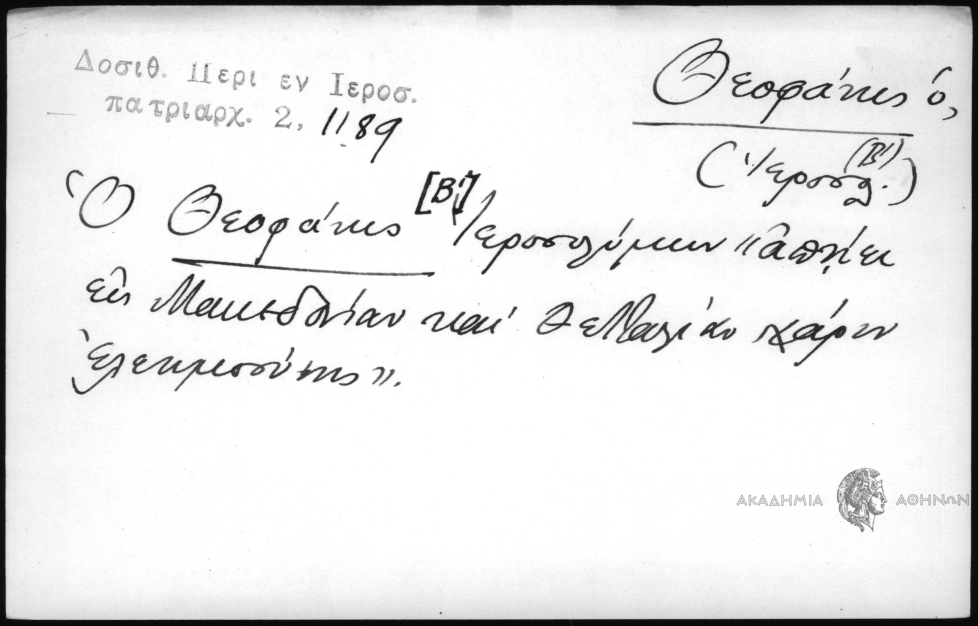 Δοσιθ. Περι εν Ιεροσ.
πατριαρχ. 2, 1189
Θεοφάνης ὁ,
(Ἱεροσολ. (Β'))
Ὁ Θεοφάνης [Β'] Ἱεροσολύμων "ἀπῄει
εἰς Μακεδονίαν καί Θεσσαλίαν χάριν
ἐλεημοσύνης".
ΑΚΑΔΗΜΙΑ ΑΘΗΝΩΝ